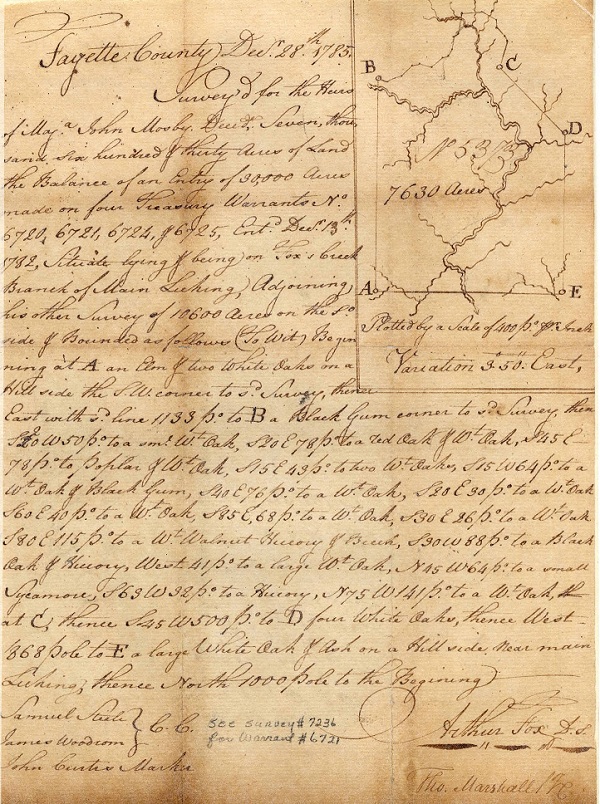 Fayette County Decr. 28.th 1785.
Survey'd for the Heirs
of Majr. John Mosby Decd. Seven, thou,
sand six hundred & thirty Acres of Land
the Balance of an Entry of 30,000 Acres
made on four Treasury Warrants No.
6720, 6721, 6724, & 6725, Entd. Decr. 13.th
1782, Situate lying & being on Fox's Creek
Branch of Main Licking, Adjoining
his other Survey of 10600 Acres on the So.
side & Bounded as follows (To Wit) Begin
ning at A an Elm & two White Oaks on a
Hill side the S.W. corner to sd. Survey, thence
East with sd. line 1133 po. to B a Black Gum corner to sd. Survey, then
S20W 50 po. to a sml. Wt. Oak, S20E 78 po. to a red Oak & Wt. Oak, S45E
78 po. to Poplar & Wt. Oak, S15E 43 po. to two Wt. Oakes, S15W 64 po. to a
Wt. Oak & Black Gum, S40E 76 po. to a Wt. Oak, S20E 30 po. to a Wt. Oak
S60E 40 po. to a Wt. Oak, S85E, 68 po. to a Wt. Oak, S30E 26 po. to a Wt. Oak
S80E 115 po. to a Wt. Walnut Hicory & Beech, S30W 88 po. to a Black
Oak & Hicory, West 41 po. to a large Wt. Oak, N45W 64 po. to a small
Sycamore, S63W 32 po. to a Hicory, N75W 141 po. to a Wt. Oak,
at C, thence S45W 500 po. to D four White Oaks, thence West
868 pole to E a large White Oak & Ash on a Hill side, near main
Licking; thence North 1000 pole to the Begining
Samuel Steele
James Woodrom } C.C.
John Curtis Marker
See survey # 7236
for Warrant # 6721
Arthur Fox D.S.
Tho. Marshall
B
C
D
7630 Acres
A
E
Plotted by a Scale of 400 po. pr. Inch
Variation 3°.50'. East,